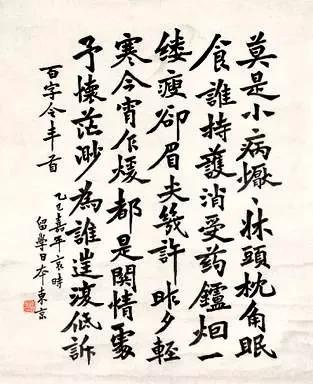 莫是小病懨、牀頭枕角眠
食誰持護消受药鑪烟一
缕瘦卻眉夫幾許昨夕輕
寒今宵乍煖都是関情處
予懷茫渺為誰復低訴
百字令半首
乙巳嘉平哀時
留學日本東京